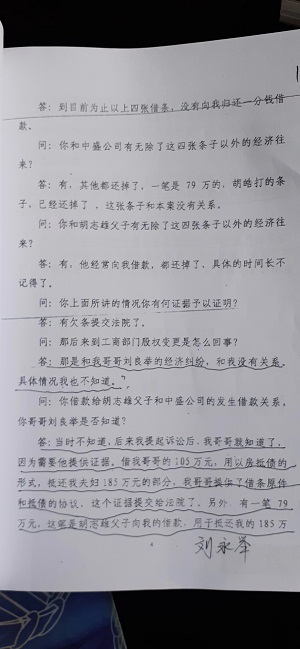 答：到目前为止以上四张借条，没有向我归还一分钱借
款。
问：你和中盛公司有无除了这四张条子以外的经济往
来？
答：有，其他都还掉了，一笔是 79 万的，胡皓打的条
子，已经还掉了 ，这张条子和本案没有关系。
问：你和胡志雄父子有无除了这四张条子以外的经济往
来？
答：有，他经常向我借款，都还掉了，具体的时间长不
记得了。
问：你上面所讲的情况你有何证据予以证明？
答：有欠条提交法院了。
问：那后来到工商部门股权变更是怎么回事？
答：那是和我哥哥刘良举的经济纠纷，和我没有关系，
具体情况我也不知道。
问：你借款给胡志雄父子和中盛公司的发生借款关系，
你哥哥刘良举是否知道？
答：当时不知道，后来我提起诉讼后，我哥哥就知道了，
因为需要他提供证据。借我哥的 105 万元，用以房抵债的
形式，抵还我夫妇 185 万元的部分，我哥哥提供了借条原件
和抵债的协议，这个证据提交给法院了。另外，有一笔 79
万元，这笔是胡志雄父子向我的借款，用于抵还我的 185 万
刘永举